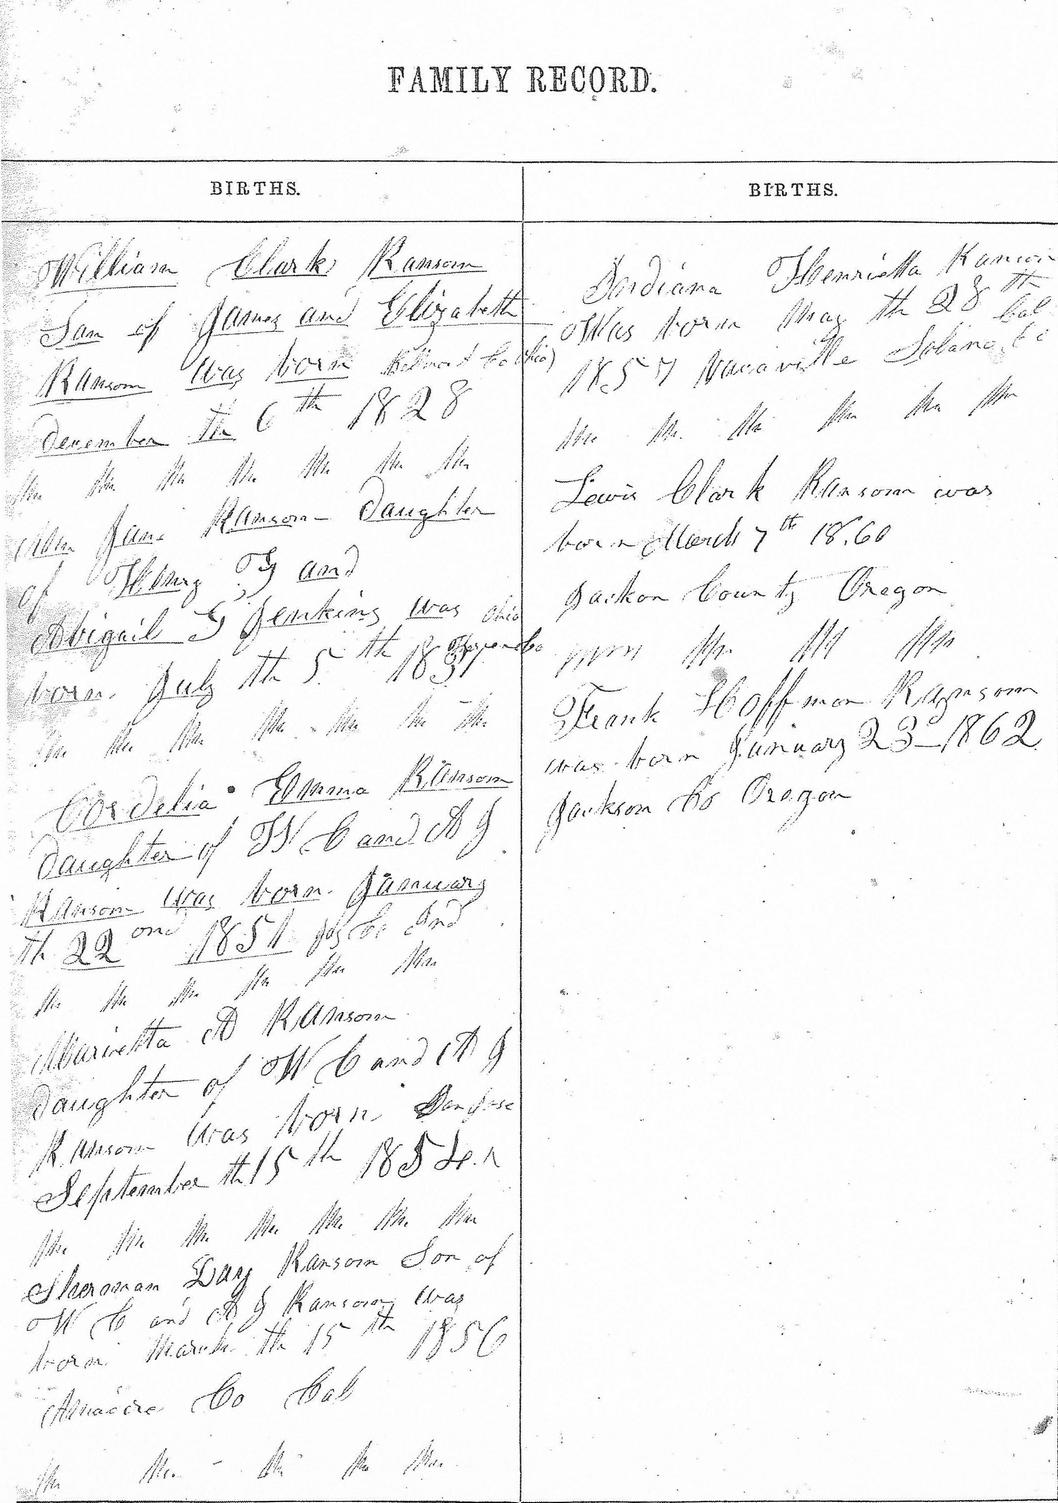 FAMILY RECORD.
BIRTHS.
William Clark Ransom
Son of James and Elizabeth
Ransom was born
December th 6th 1828
Ann Jane Ransom Daughter
of Henry and
Abigail G Jenkins was Ohio
born. July th 5th 1831
Cordelia Emma Ransom
daughter of W C and A J
Ransom was born. January
th 22ond 1851 Ind
Marietta A Ransom
daughter of W C and A J
Ransom was born San Jose
September th 15th 1854
Sherman Day Ransom Son of
W C and A J Ransom was
born March th 15th 1856
Co Cal
BIRTHS.
Indiana Henrietta Ransom
Was born May th 28th
1857 Vacaville Solano Co Cal
Lewis Clark Ransom was
born March 7th 1860
Jackon County Oregon
Frank Hoffman Ransom
was born January 23-1862
Jackson Co Oregon